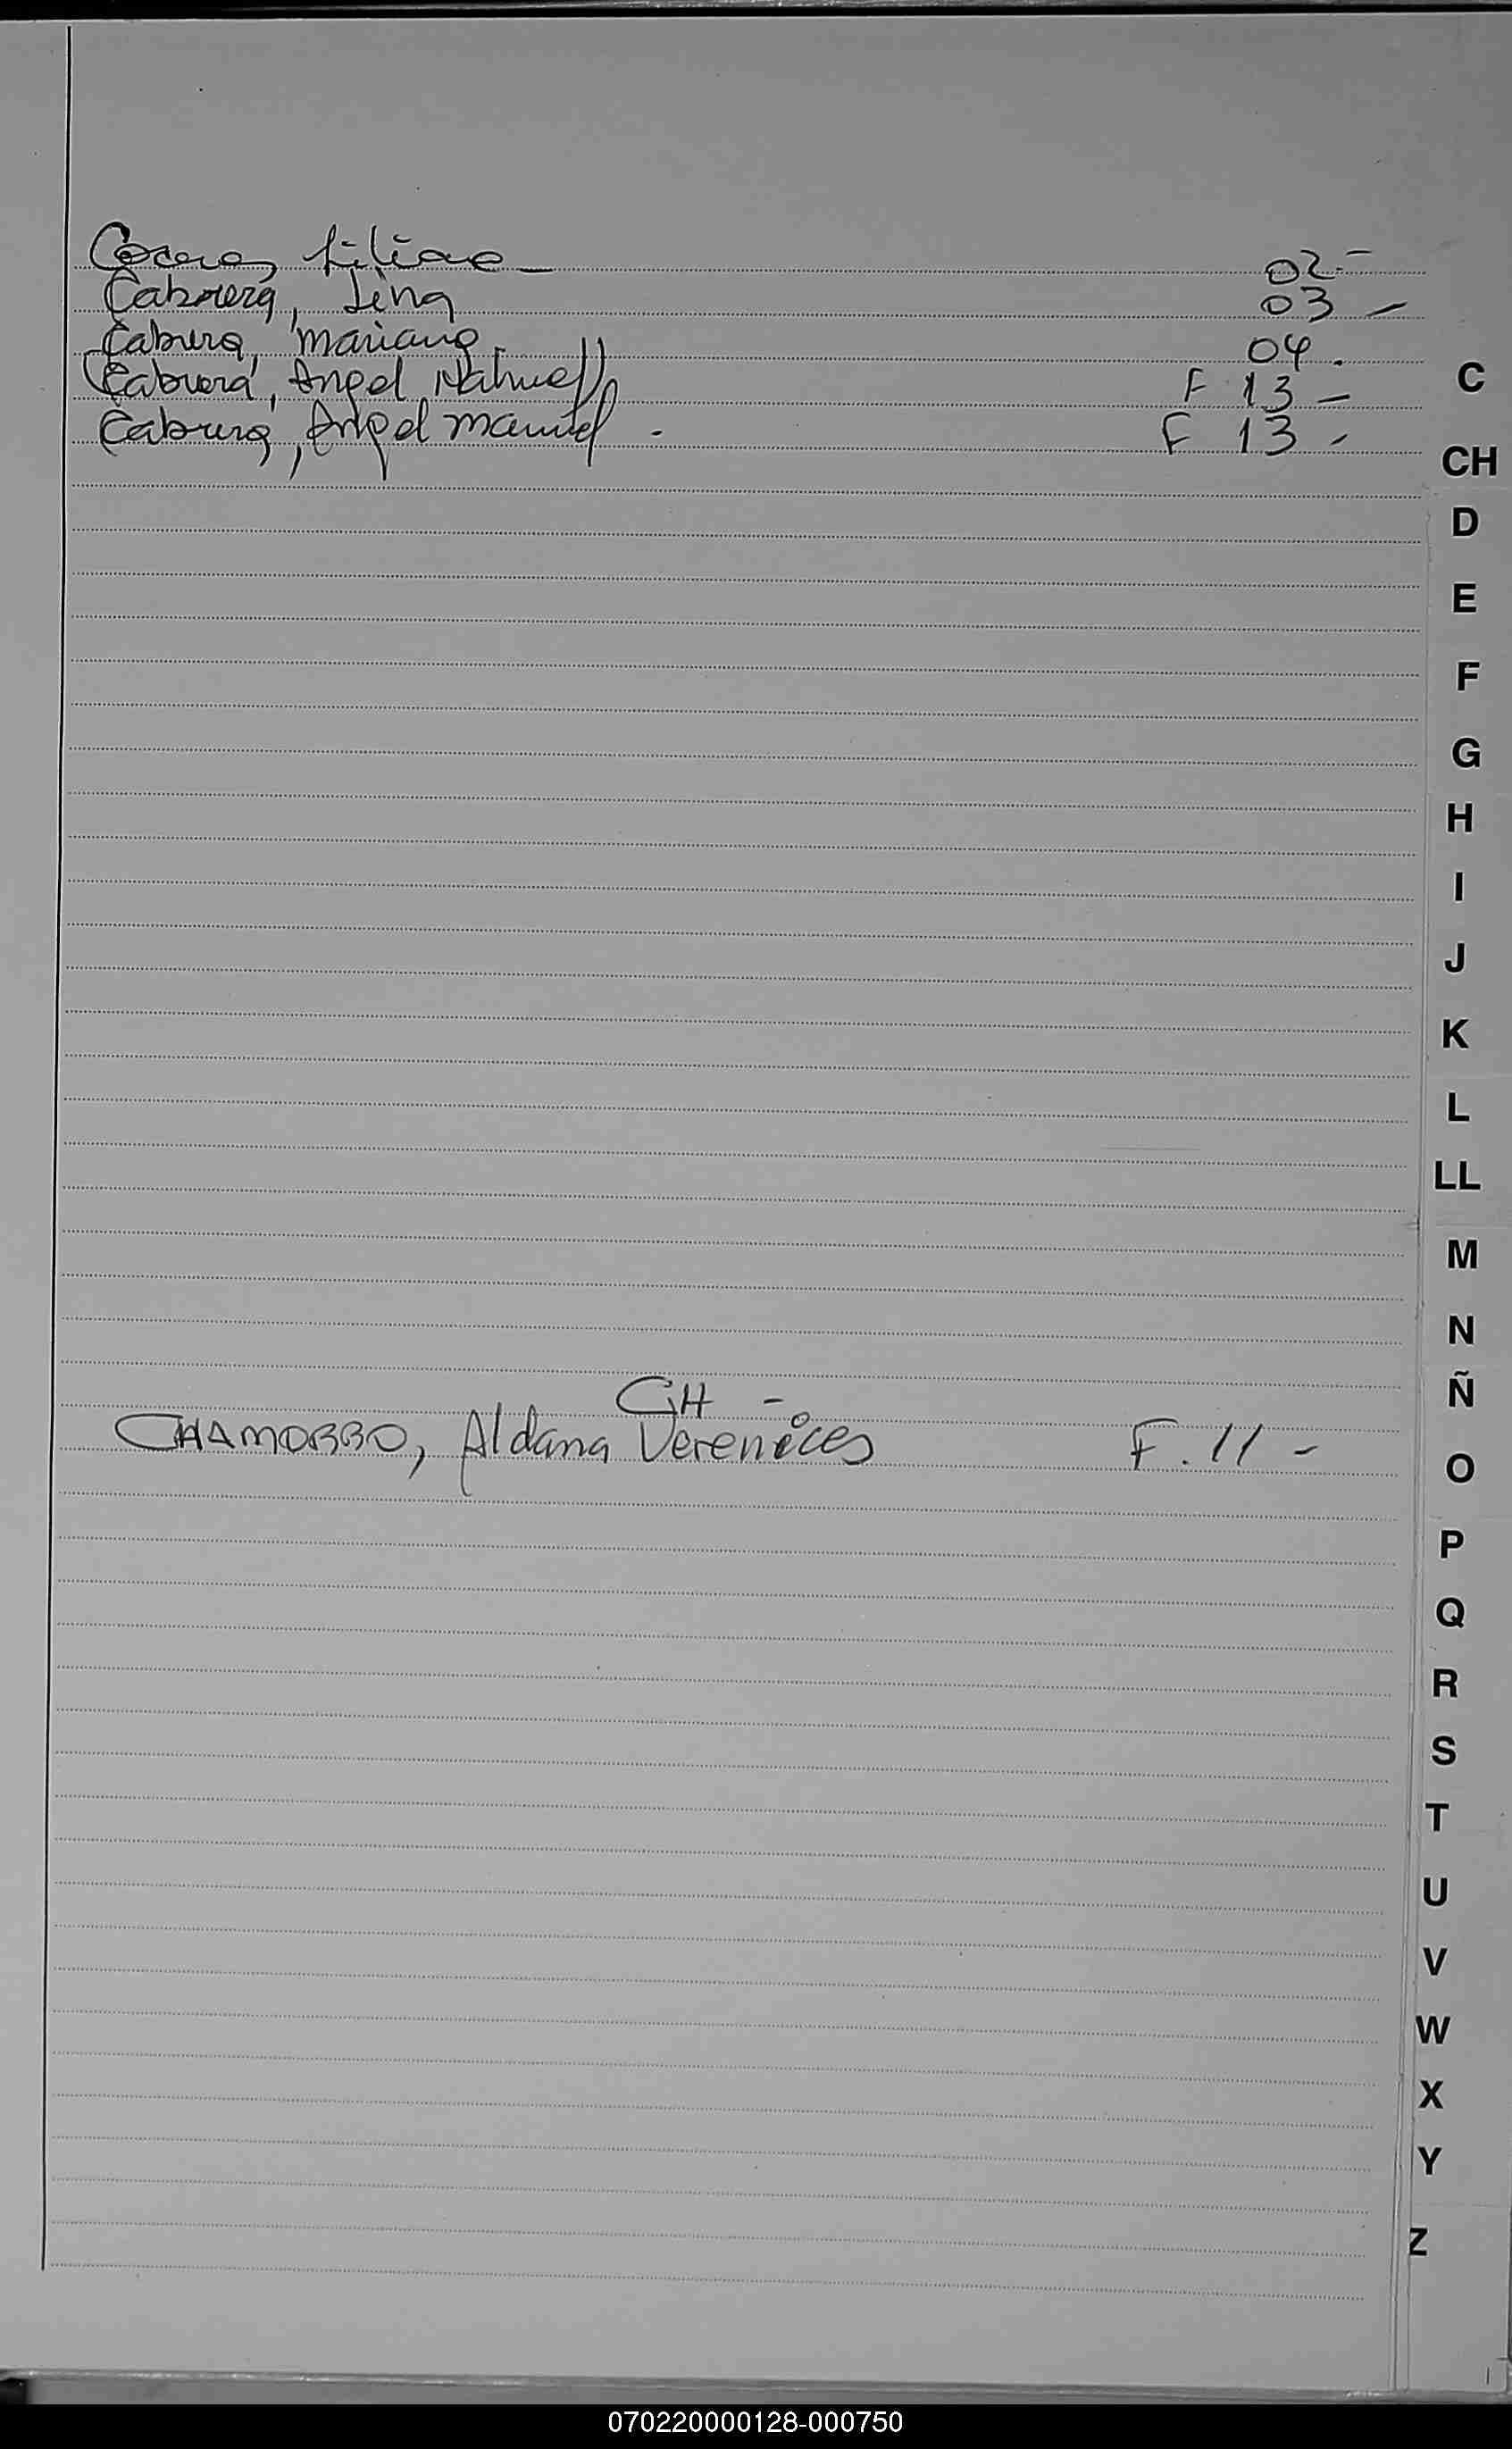 Liliana - 02.-
Cabrera, Lina 03 -
Cabrera, Mariana. 04.
Cabrera, Angel Nahuel F 13 -
Cabrera, Angel Manuel - F 13 -
C
CH
D
E
F
G
H
I
J
K
L
LL
M
N
Ñ
CH -
CHAMORRO, Aldana Verenices F. 11 -
O
P
Q
R
S
T
U
V
W
X
Y
Z
070220000128-000750